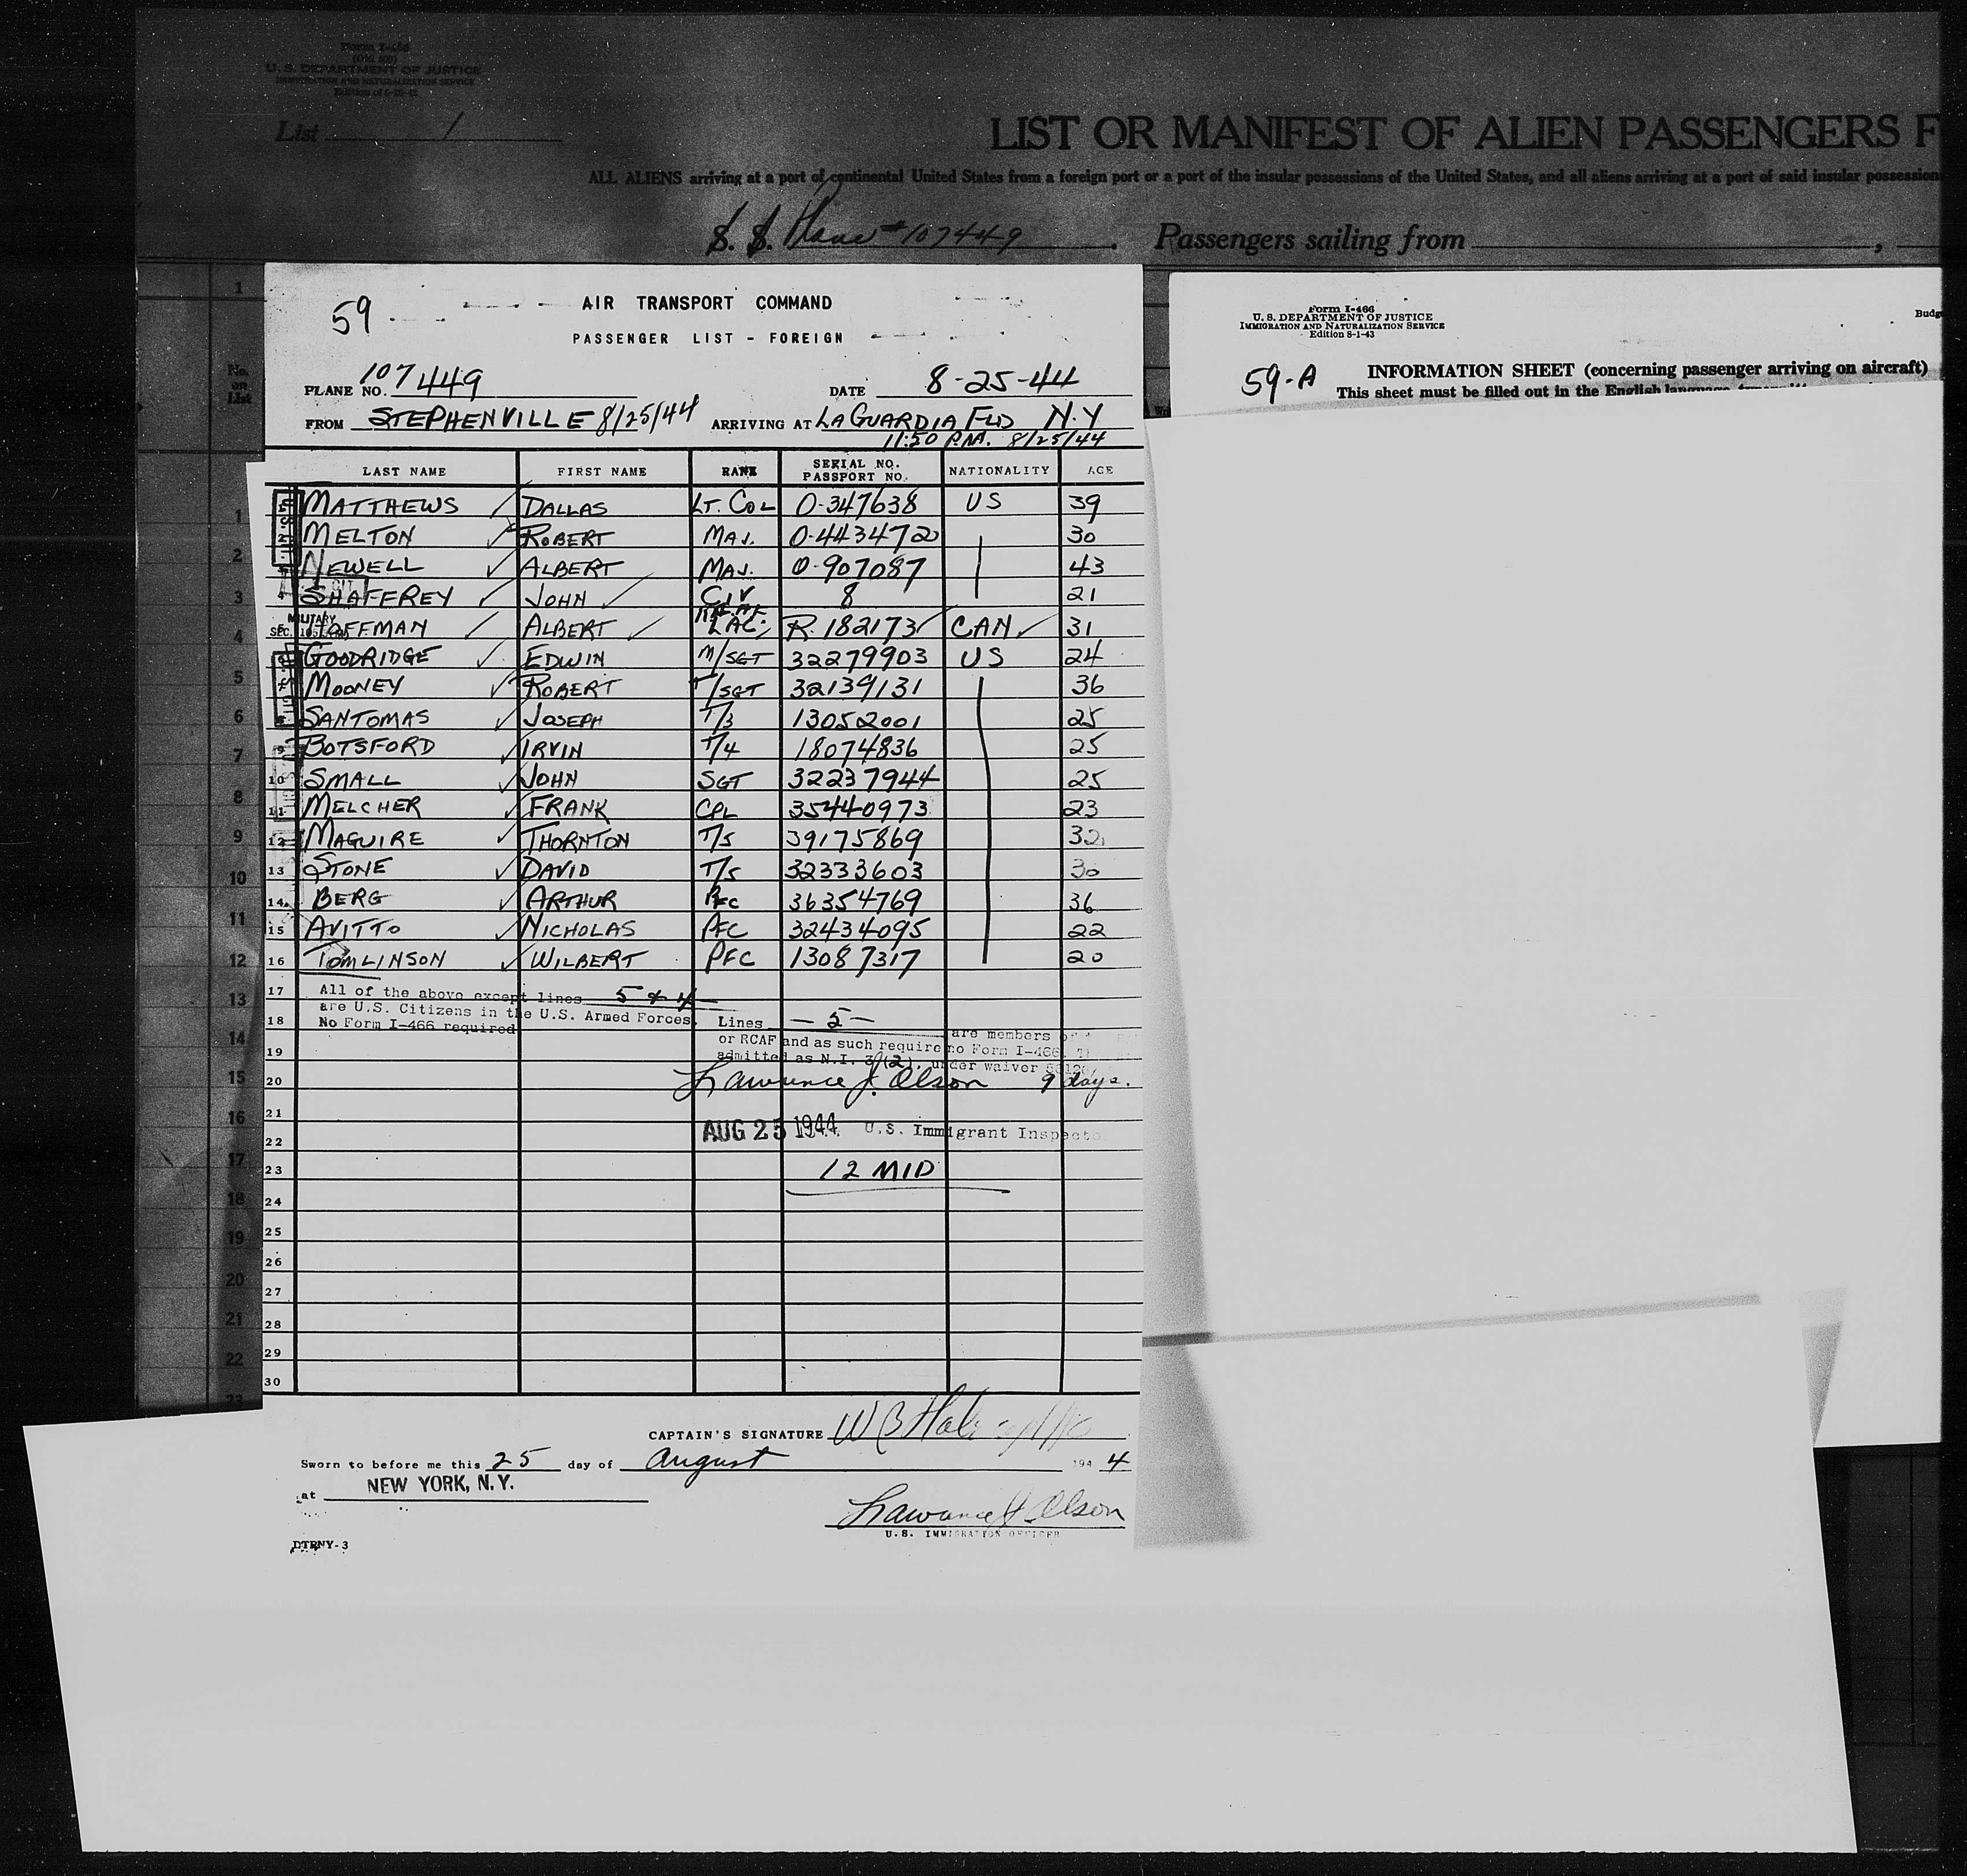 Form I-466
(Old 500)
U. S. DEPARTMENT OF JUSTICE
IMMIGRATION AND NATURALIZATION SERVICE
List 1
LIST OR MANIFEST OF ALIEN PASSENGERS F
ALL ALIENS arriving at a port of continental United States from a foreign port or a port of the insular possessions of the United States, and all aliens arriving at a port of said insular possession
S. S. Plane #107449 . Passengers sailing from ,
59
AIR TRANSPORT COMMAND
PASSENGER LIST - FOREIGN
PLANE NO. 107449 DATE 8-25-44
FROM STEPHENVILLE 8/25/44 ARRIVING AT LA GUARDIA FLD N.Y
11:50 P.M. 8/25/44
LAST NAME FIRST NAME RANK SERIAL NO. PASSPORT NO. NATIONALITY AGE
MATTHEWS DALLAS LT. COL O-347638 US 39
MELTON ROBERT MAJ. O-443472 30
NEWELL ALBERT MAJ. O-907087 43
4 SHAFFREY JOHN CIV 8 21
5 HOFFMAN ALBERT LAC. R.182173 CAN 31
GOODRIDGE EDWIN M/SGT 32279903 US 24
MOONEY ROBERT T/SGT 32139131 36
SANTOMAS JOSEPH T/3 13052001 25
BOTSFORD IRVIN T/4 18074836 25
10 SMALL JOHN SGT 32237944 25
11 MELCHER FRANK CPL 35440973 23
12 MAGUIRE THORNTON T/5 39175869 32
13 STONE DAVID T/5 32333603 30
14 BERG ARTHUR PFC 36354769 36
15 AVITTO NICHOLAS PFC 32434095 22
16 TOMLINSON WILBERT PFC 13087317 20
17 All of the above except lines 5 & 4
are U.S. Citizens in the U.S. Armed Forces.
18 No Form I-466 required
Lines - 5 - are members of
or RCAF and as such require no Form I-466.
19 admitted as N.I. 3(2), under waiver
20 Lawrence J. Olson 9 days.
21
AUG 25 1944 U.S. Immigrant Inspector
22
23 12 MID
24
25
26
27
28
29
30
CAPTAIN'S SIGNATURE
Sworn to before me this 25 day of August 1944
at NEW YORK, N.Y.
Lawrence J. Olson
U.S. IMMIGRATION OFFICER
DTRNY-3
Form I-466
U. S. DEPARTMENT OF JUSTICE
IMMIGRATION AND NATURALIZATION SERVICE
Edition 8-1-43
Budg
59-A INFORMATION SHEET (concerning passenger arriving on aircraft)
This sheet must be filled out in the English language
No. on List
1
1
2
3
4
5
6
7
8
9
10
11
12
13
14
15
16
17
18
19
20
21
22
23